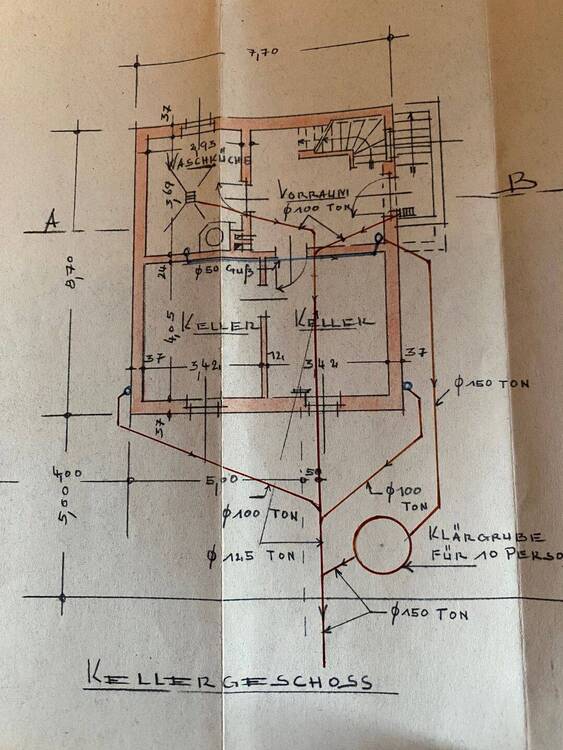 7,70
37
2,93
WASCHKÜCHE
B
VORRAUM
Ø100 TON
3,69
A
8,70
24
Ø50 Guß
4,05
KELLER
KELLER
37
3,42
12
3,42
37
Ø150 TON
37
4,00
5,00
5,00
50
Ø100 TON
Ø100
TON
KLÄRGRUBE
FÜR 10 PERSO
Ø125 TON
Ø150 TON
KELLERGESCHOSS